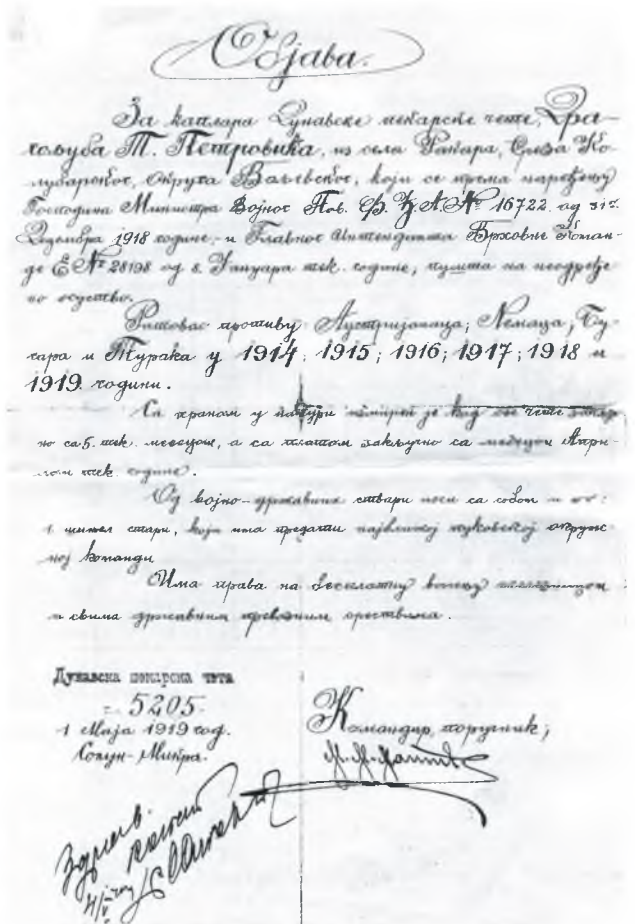 Објава.
За каплара Дунавске пекарске чете, Дра-
гољуба Т. Петровића, из села Рабара, Среза Ко-
лубарског, округа Ваљевског, који се према наређењу
Господина Министра Војног Пов. Ф. Ђ. А № 16722 од 31г.
Децембра 1918 године и Главног Интенданта Врховне Коман-
де Е № 28198 од 8. Јануара тек. године, пушта на неодређе
но осуство.
Ратовао противу Аустријанаца, Немаца, Бу-
гара и Турака у 1914; 1915; 1916; 1917; 1918 и
1919. години.
Са храном у натури измирен је код ове чете
но са 5. тек. месецом, а са платом закључно са месецом Апри-
лом тек. године.
Од војно-државних ствари носи са собом и то:
1 шињел стари, који има предати најближој пуковској окруж
ној команди
Има права на бесплатну вожњу
и свима државним превозним срествима.
Дунавска пекарска чета
5205.
1 Маја 1919 год.
Сопун-Микра.
Командир, поручник,
Здрав.